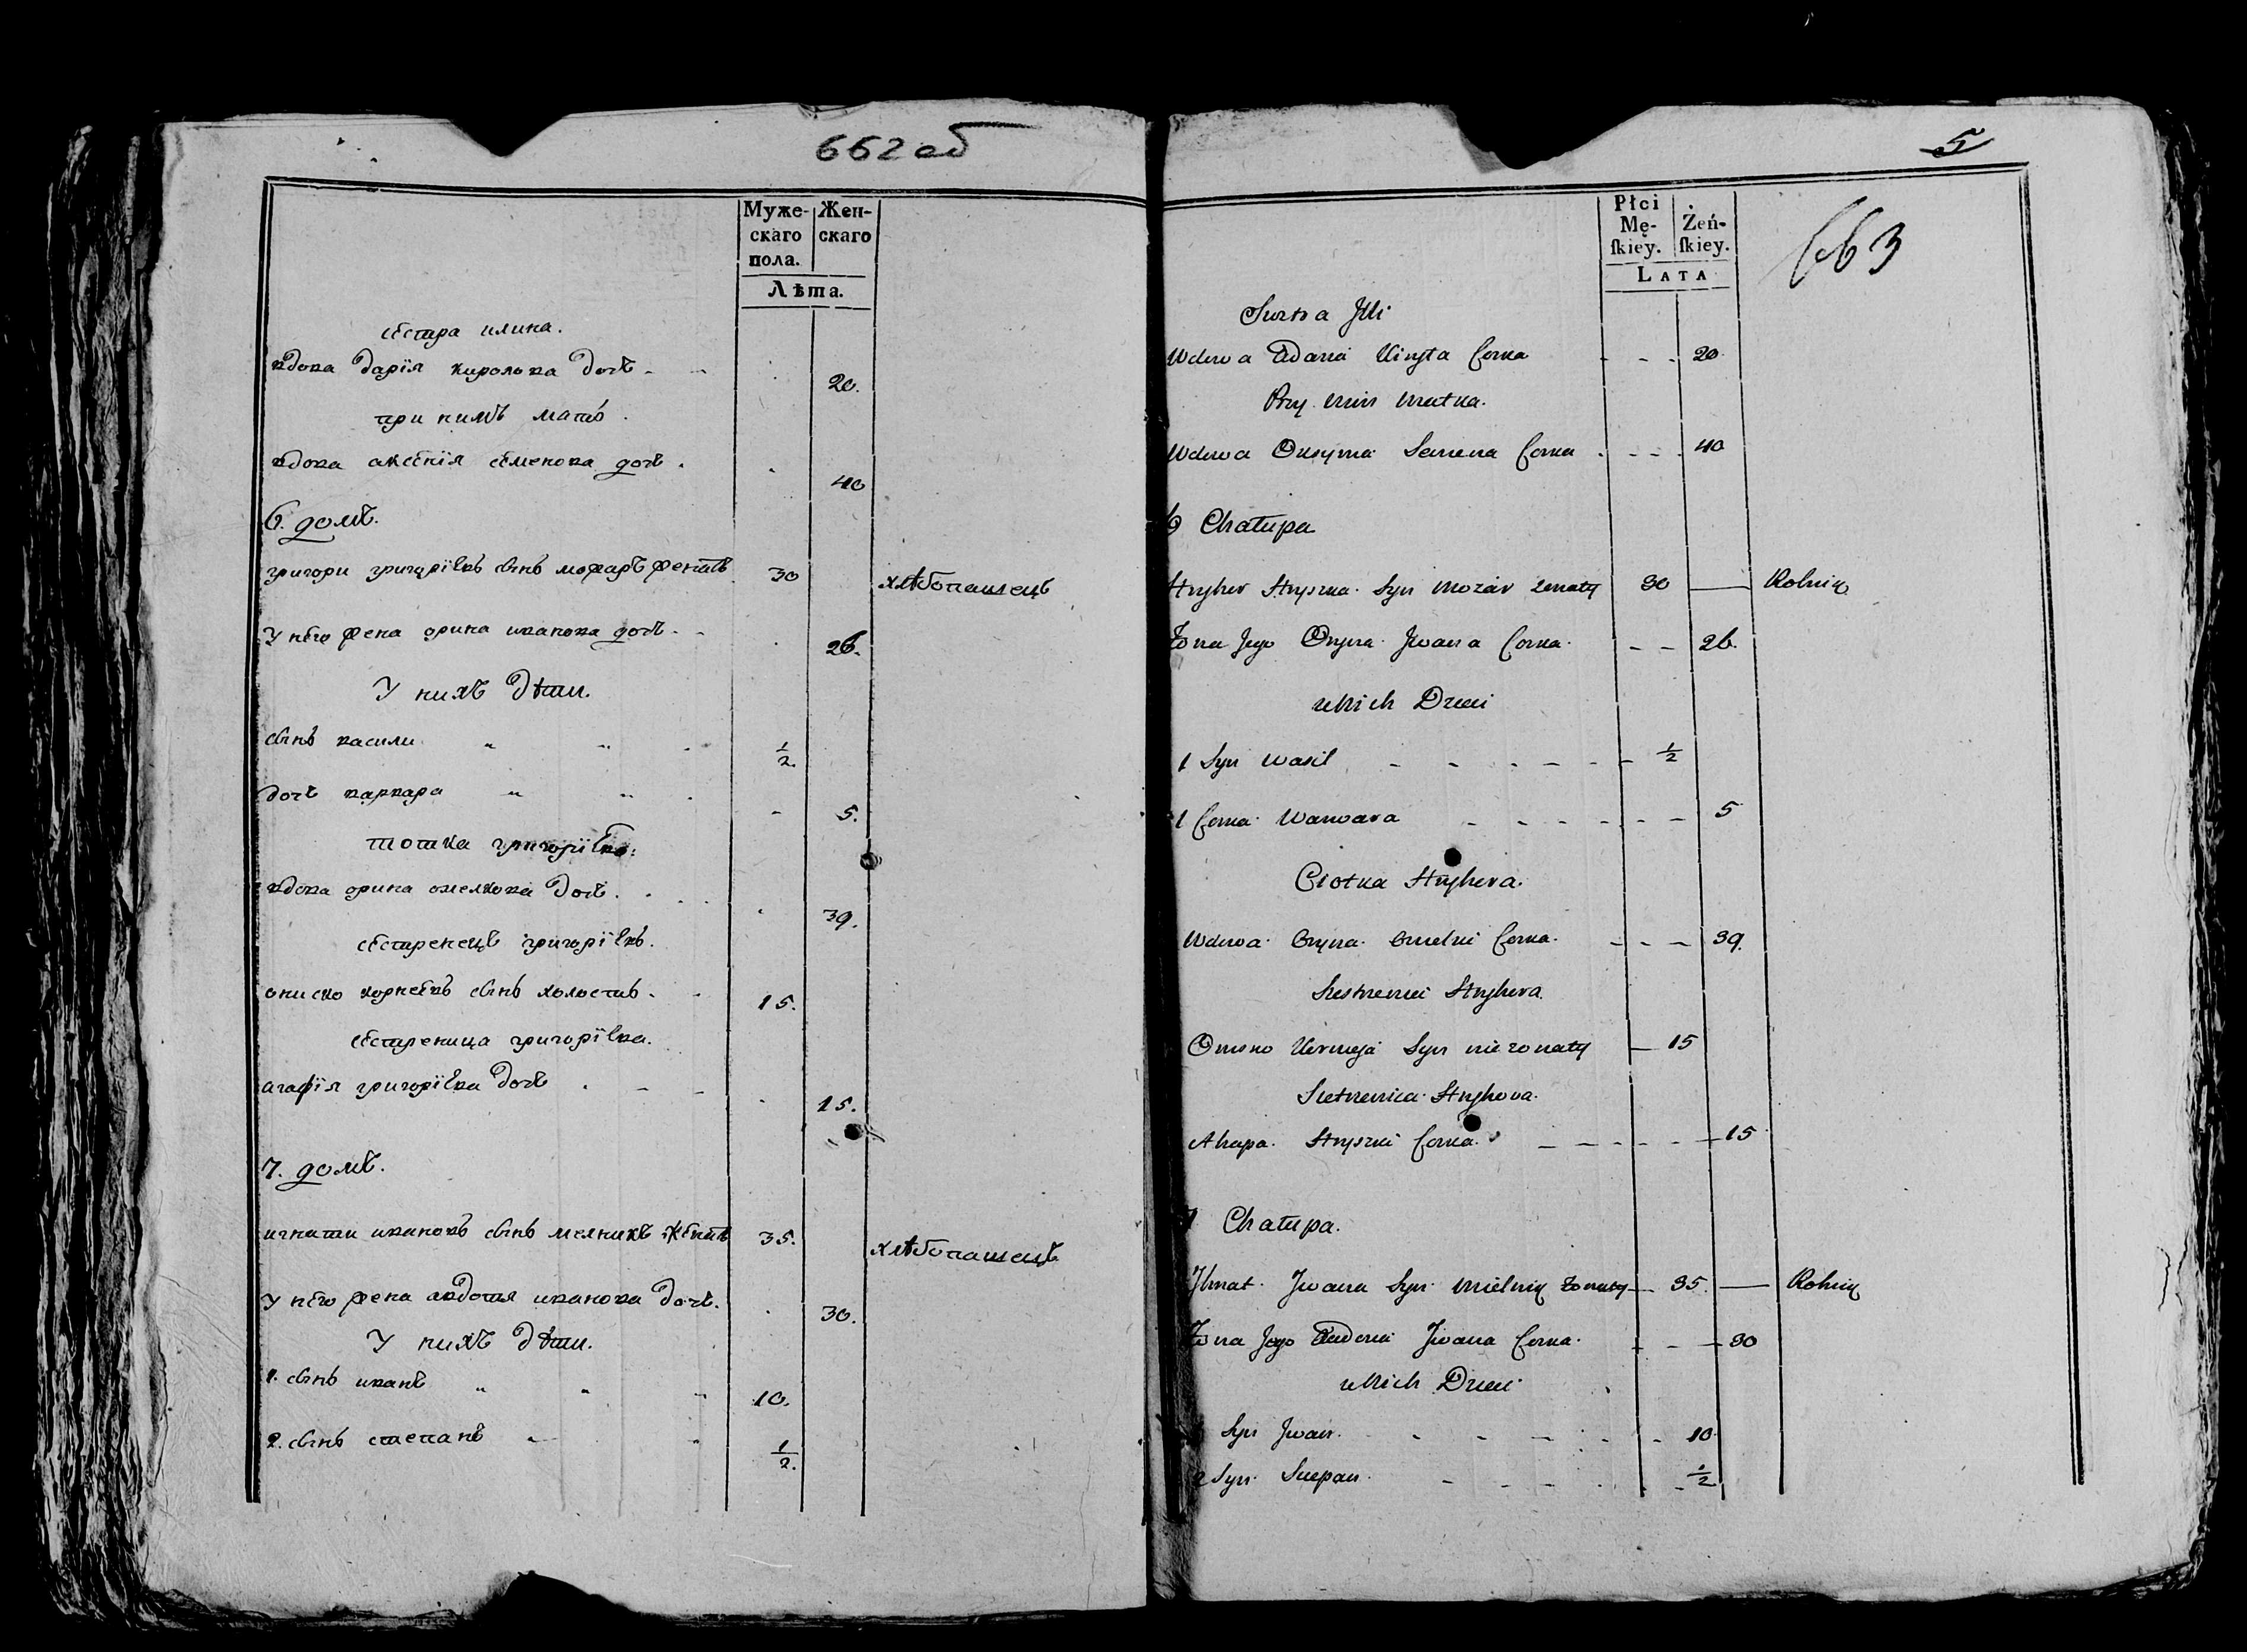 662 об
Муже- Жен-
скаго скаго
пола.
Лѣта.
сестра илина.
вдова дарїя киролова дочъ - - 20.
при нимъ матъ.
вдова аксенїя семенова дочъ. 40
6. домъ.
григори григорїевъ сынъ мофаръ женатъ 30 хлѣбопашецъ
У него жена орина иванова дочъ - - 26.
У нихъ дѣти.
сынъ василий 1/2.
дочъ варвара 5.
тотка григорїева.
вдова орина омелкова дочъ. 39.
сестренецъ григорїевъ.
ониско корнеевъ сынъ холостъ - 15.
сестреница григорїева.
агафїя григорїева дочъ . - - 15.
7. домъ.
игнати ивановъ сынъ мелникъ женатъ 35. хлѣбопашецъ
У него жена авдотя иванова дочъ. 30.
У нихъ дѣти.
1. сынъ иванъ 10.
2. сынъ степанъ 1/2.
5
663
Płci
Mę- Żeń-
ſkiey. ſkiey.
LATA
Siostra Jlli
Wdowa Odaria Kiryła Corka - - - 20
Przy Nim Matka.
Wdowa Oxsynia Semena Corka - - - 40
6 Chałupa
Hryhor Hryszka Syn Mozar żonaty 30 — Rolnik
Żona Jego Oryna Jwana Corka - - 26.
u Nich Dzieci
1 Syn Wasil - - - - - - 1/2
1 Corka Warwara - - - - - - 5
Ciotka Hryhora.
Wdowa Oryna Omelki Corka - - - 39.
Siestrzeniec Hryhora.
Onisko Kornieja Syn nie żonaty — 15
Siestrzenica Hryhora.
Ahapa Hryszki Corka - - - - - 15
7 Chałupa.
Jhnat Jwana Syn Mielnik żonaty — 35. — Rolnik
Żona Jego Awdotia Jwana Corka - - - 30
u Nich Dzieci
Syn Jwan - - - - - - 10
2 Syn Stepan - - - - - 1/2